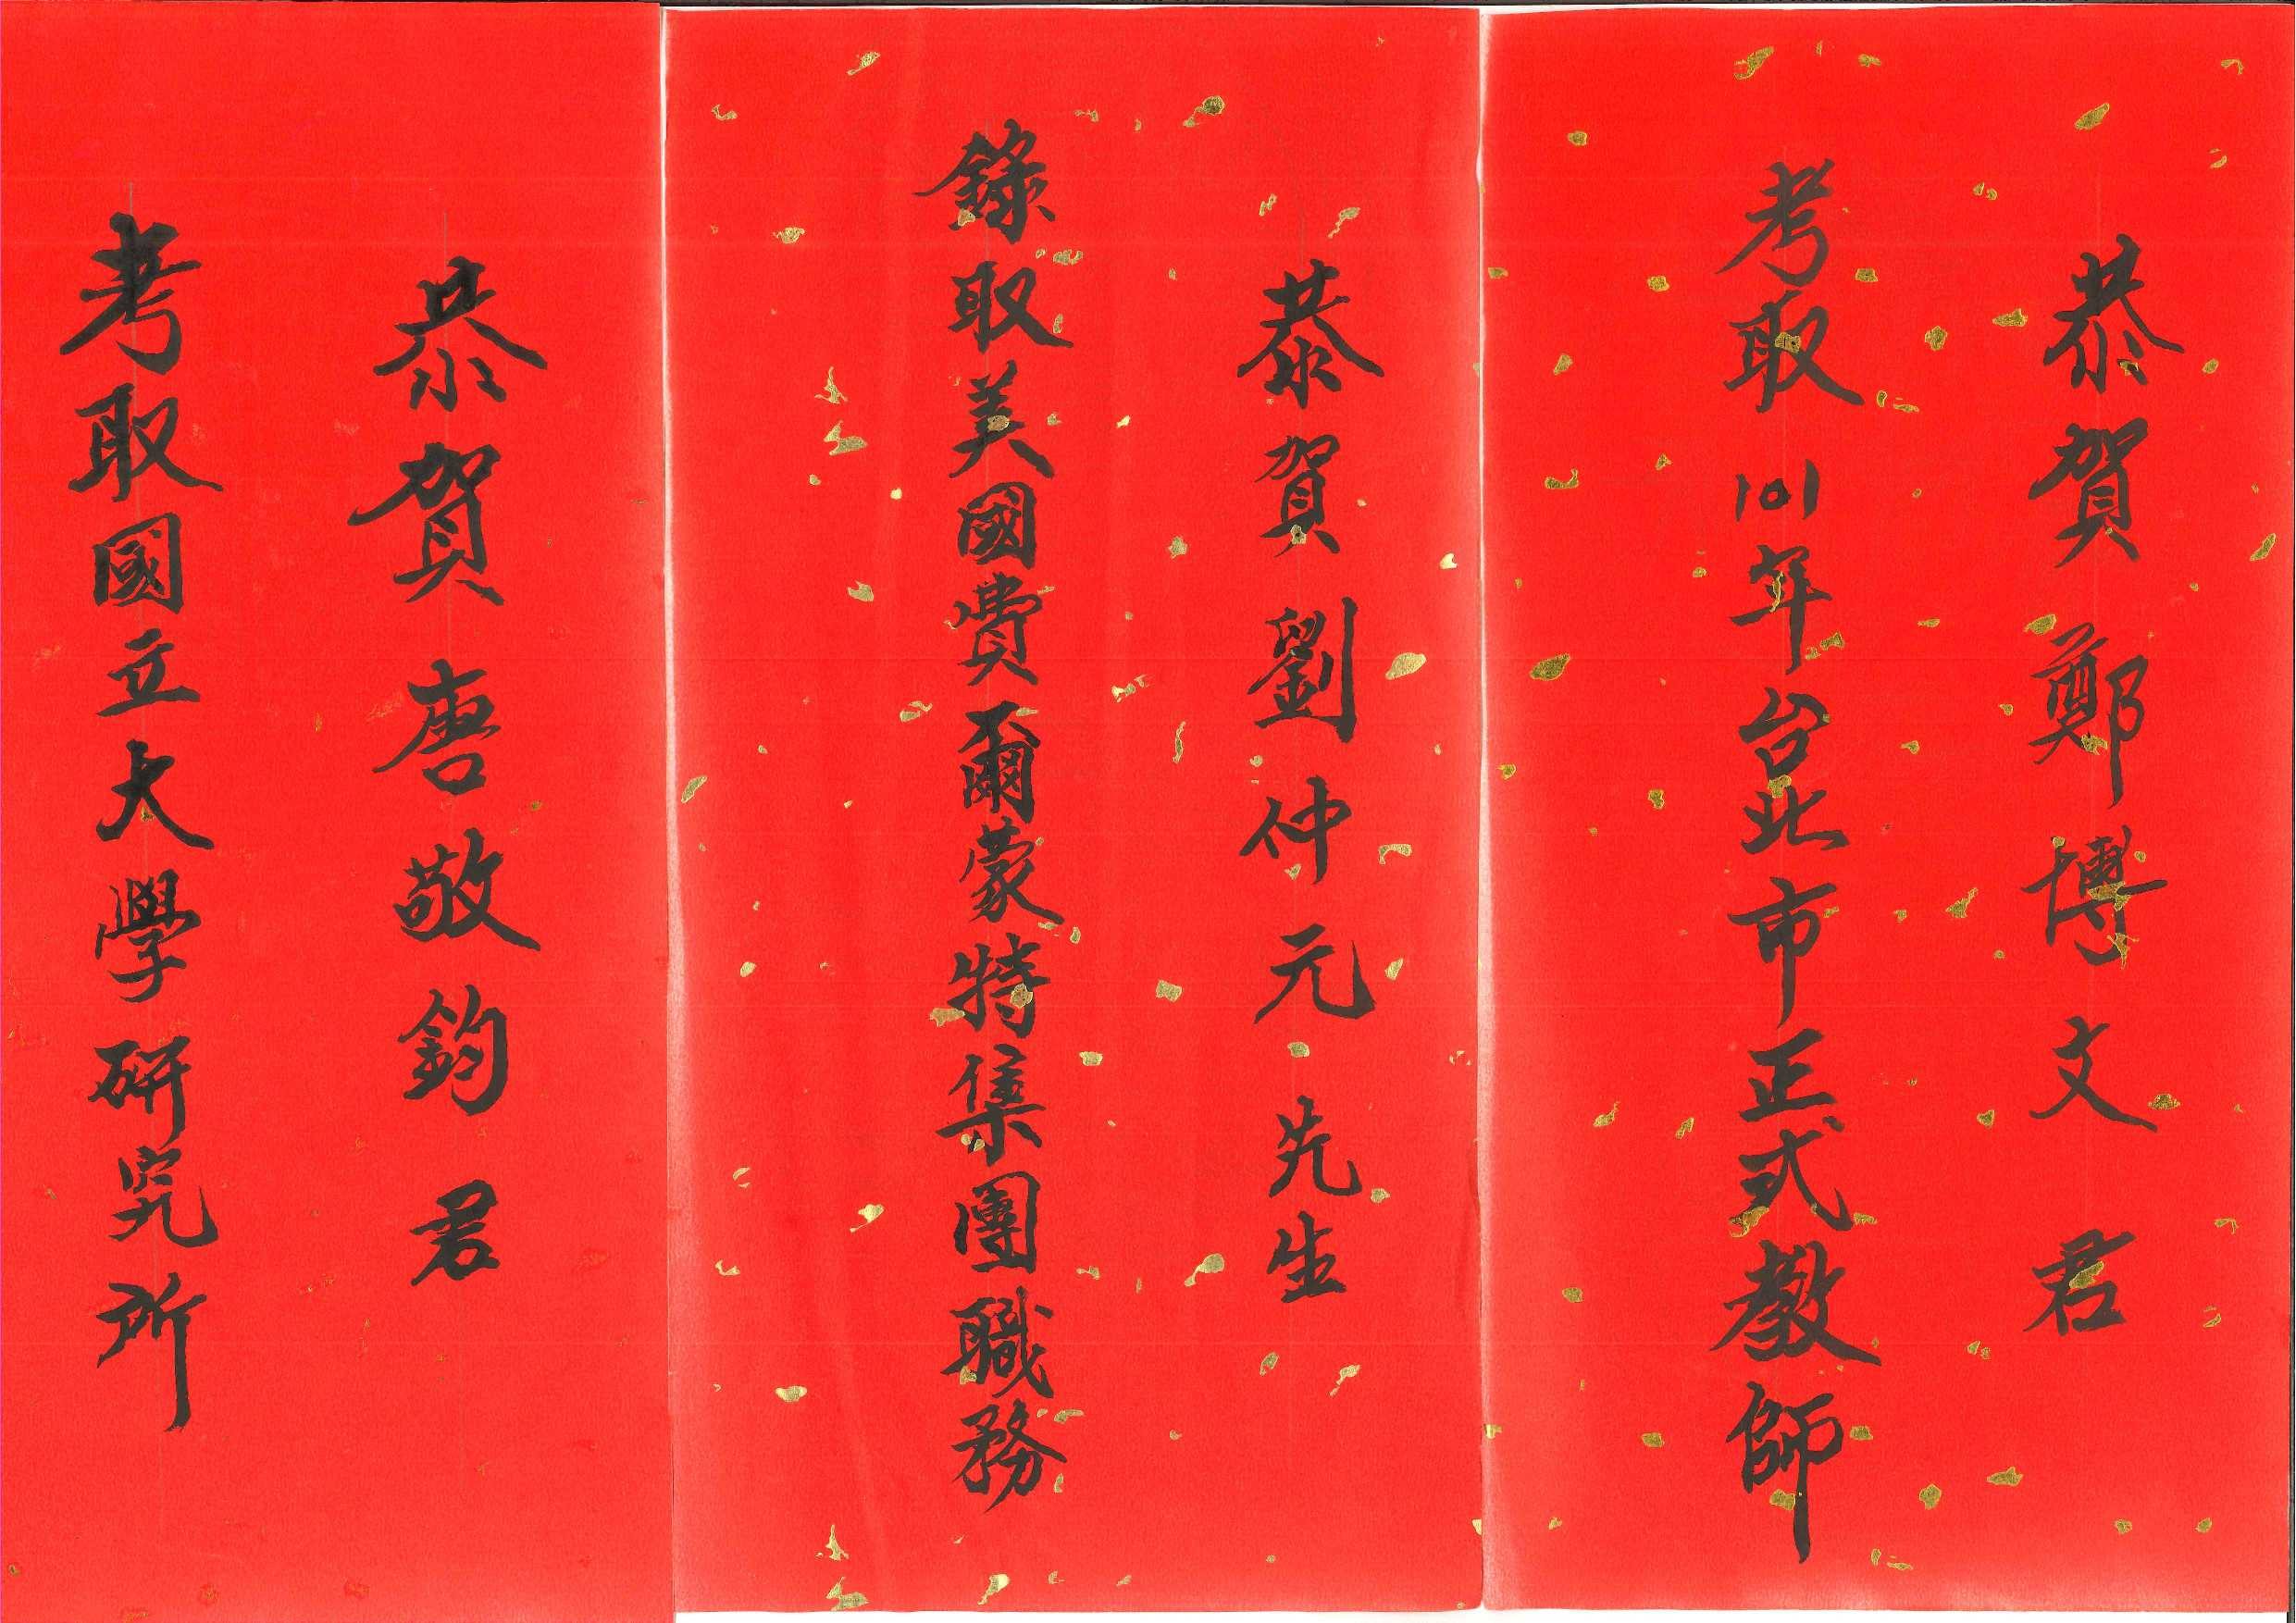 恭賀 鄭博文 君
考取101年台北市正式教師
恭賀 劉仲元 先生
錄取美國費爾蒙特集團職務
恭賀 唐敬鈞 君
考取國立大學研究所